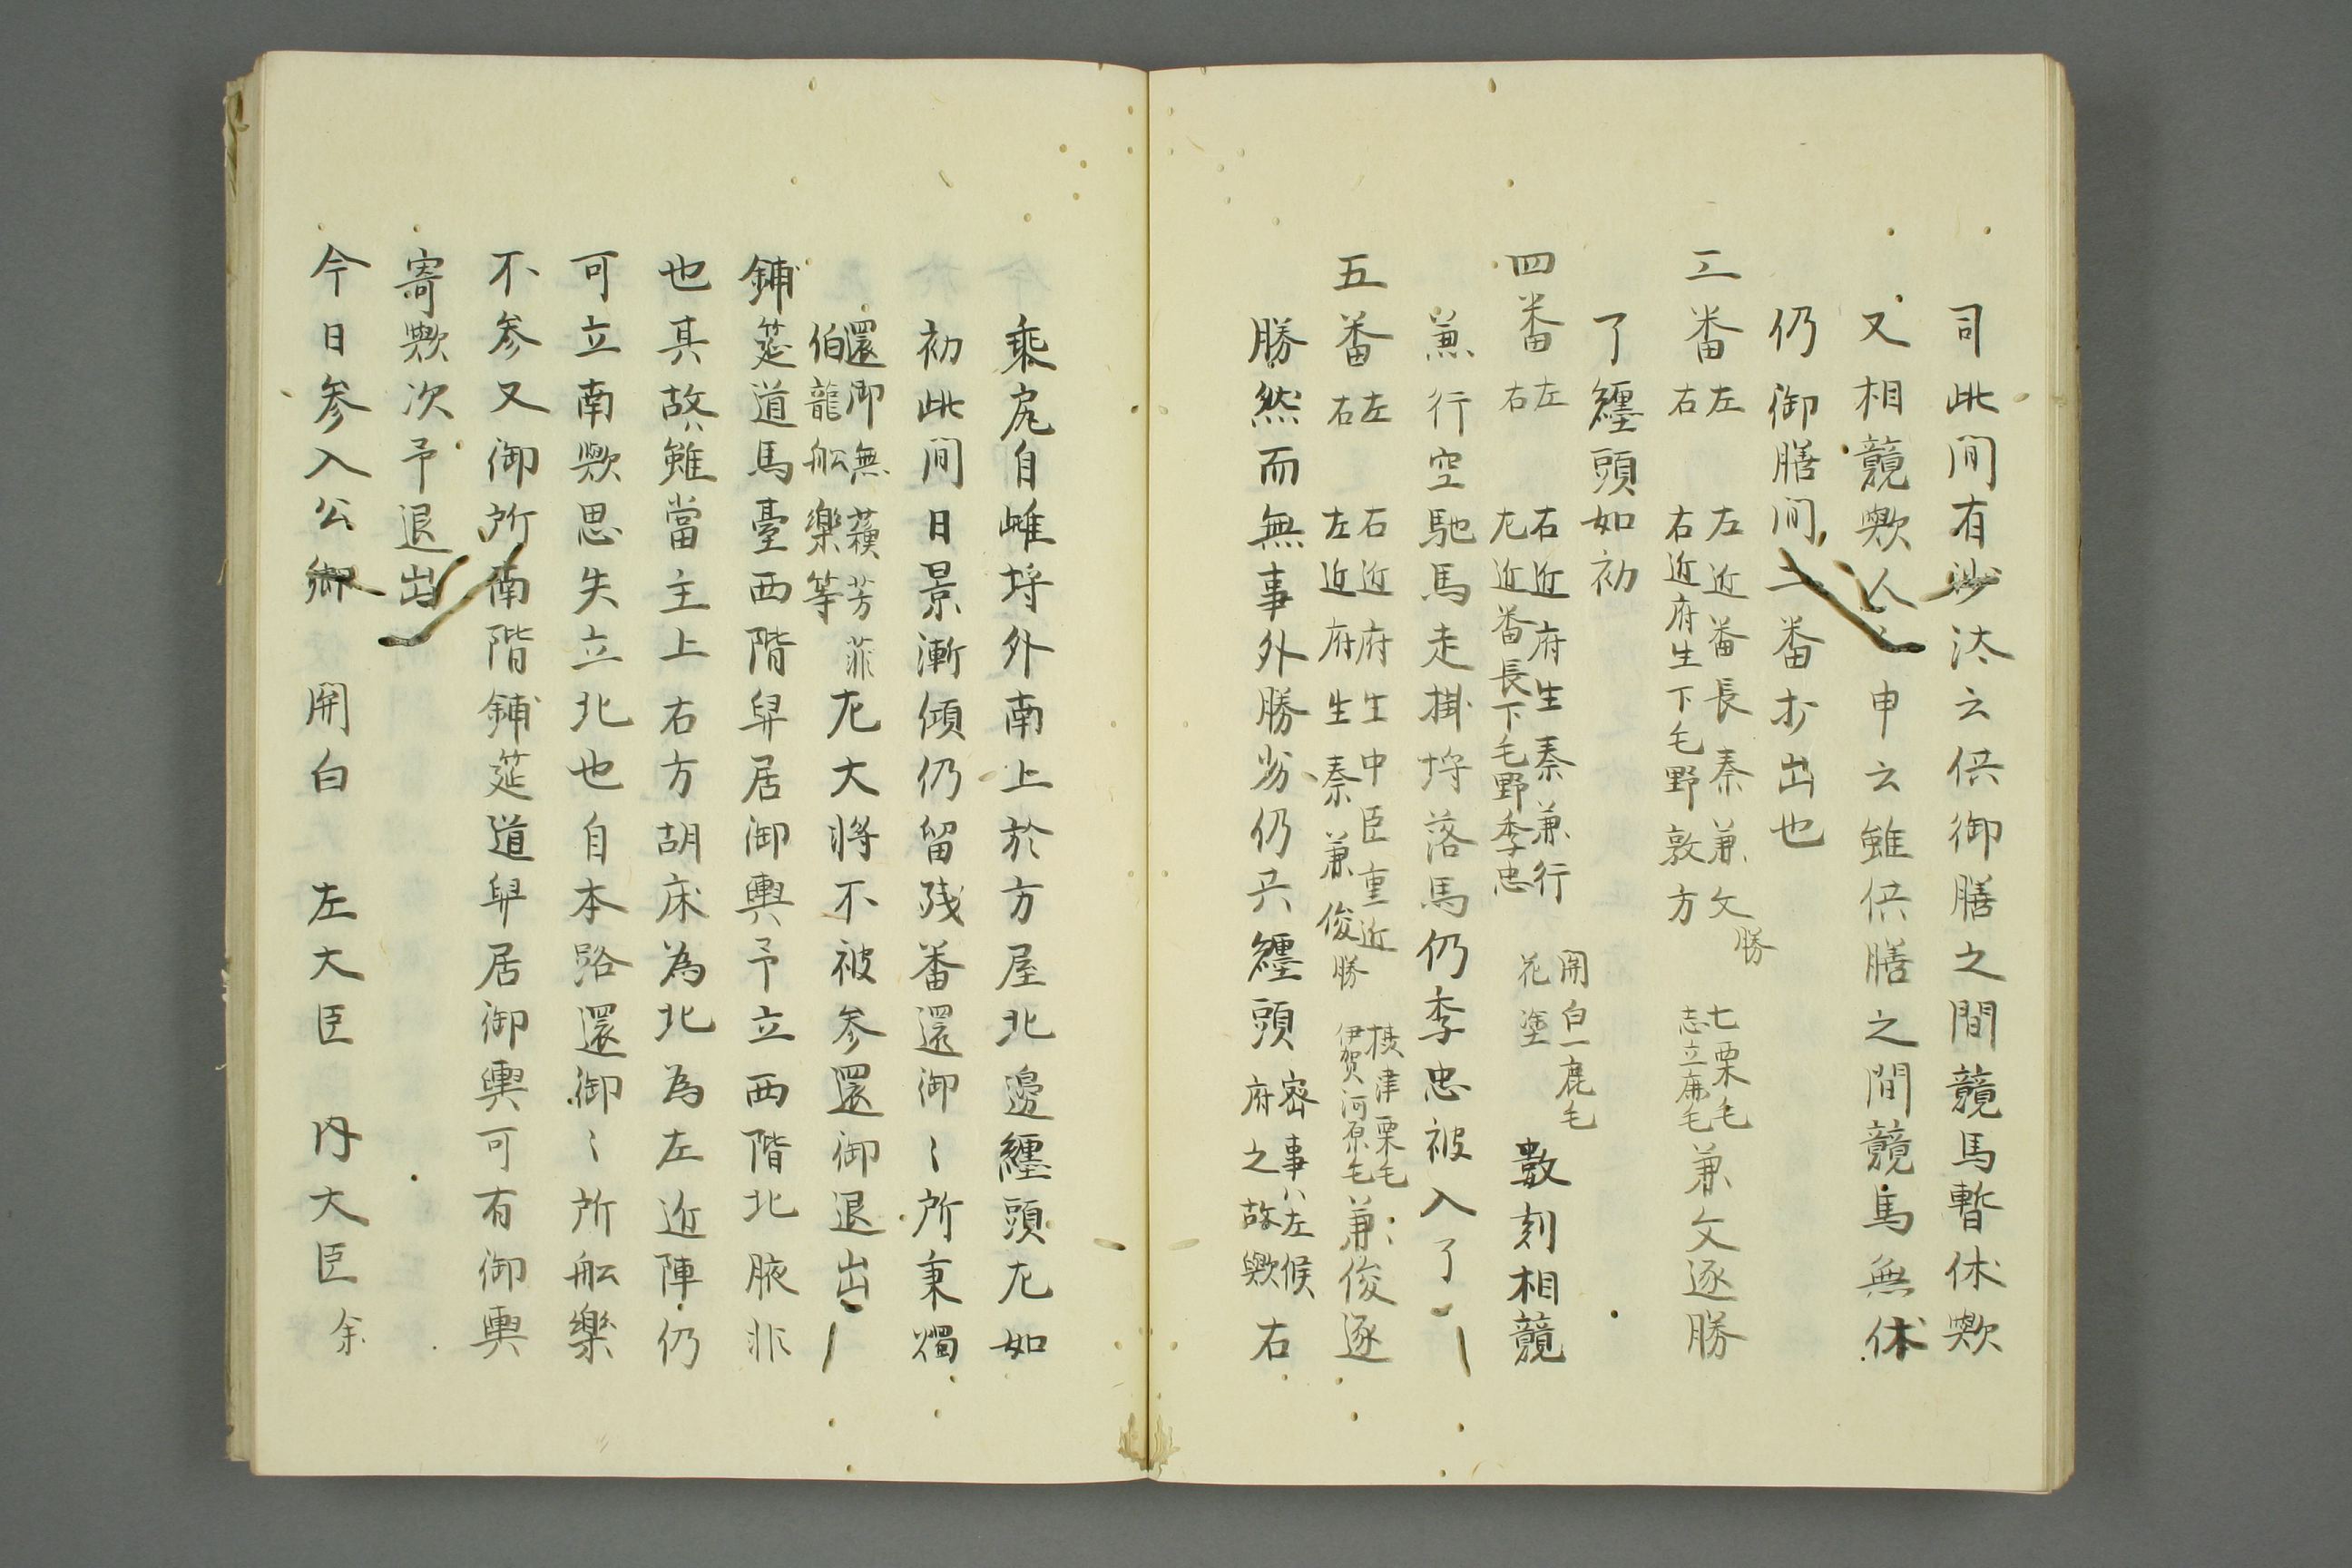 司此間有沙汰云供御膳之間競馬暫休歟
又相競歟人々申云雖供膳之間競馬無休
仍御膳間二番打出也
三番左右 左近番長秦兼文勝 右近府生下毛野敦方 七栗毛 志立鹿毛 兼文逐勝
了纏頭如初
四番左右 右近府生秦兼行 左近番長下毛野季忠 関白一鹿毛 花塗 數刻相競
兼行空馳馬走掛埒落馬仍季忠被入了
五番左右 右近府生中臣重近 左近府生秦兼俊勝 摂津栗毛 伊賀河原毛 兼俊逐
勝然而無事外勝劣仍共纏頭 密事ハ左候 府之故歟 右
乘尻自雌埒外南上於方屋北邊纏頭左如
初此間日景漸傾仍留残番還御〻所秉燭
還御無蘋芳菲 伯龍舩樂等 左大将不被参還御退出
鋪筵道馬臺西階舁居御輿予立西階北腋非
也其故雖當主上右方胡床為北為左近陣仍
可立南歟思失立北也自本路還御〻所舩樂
不参又御所南階鋪筵道舁居御輿可有御輿
寄歟次予退出
今日参入公卿 関白 左大臣 内大臣余